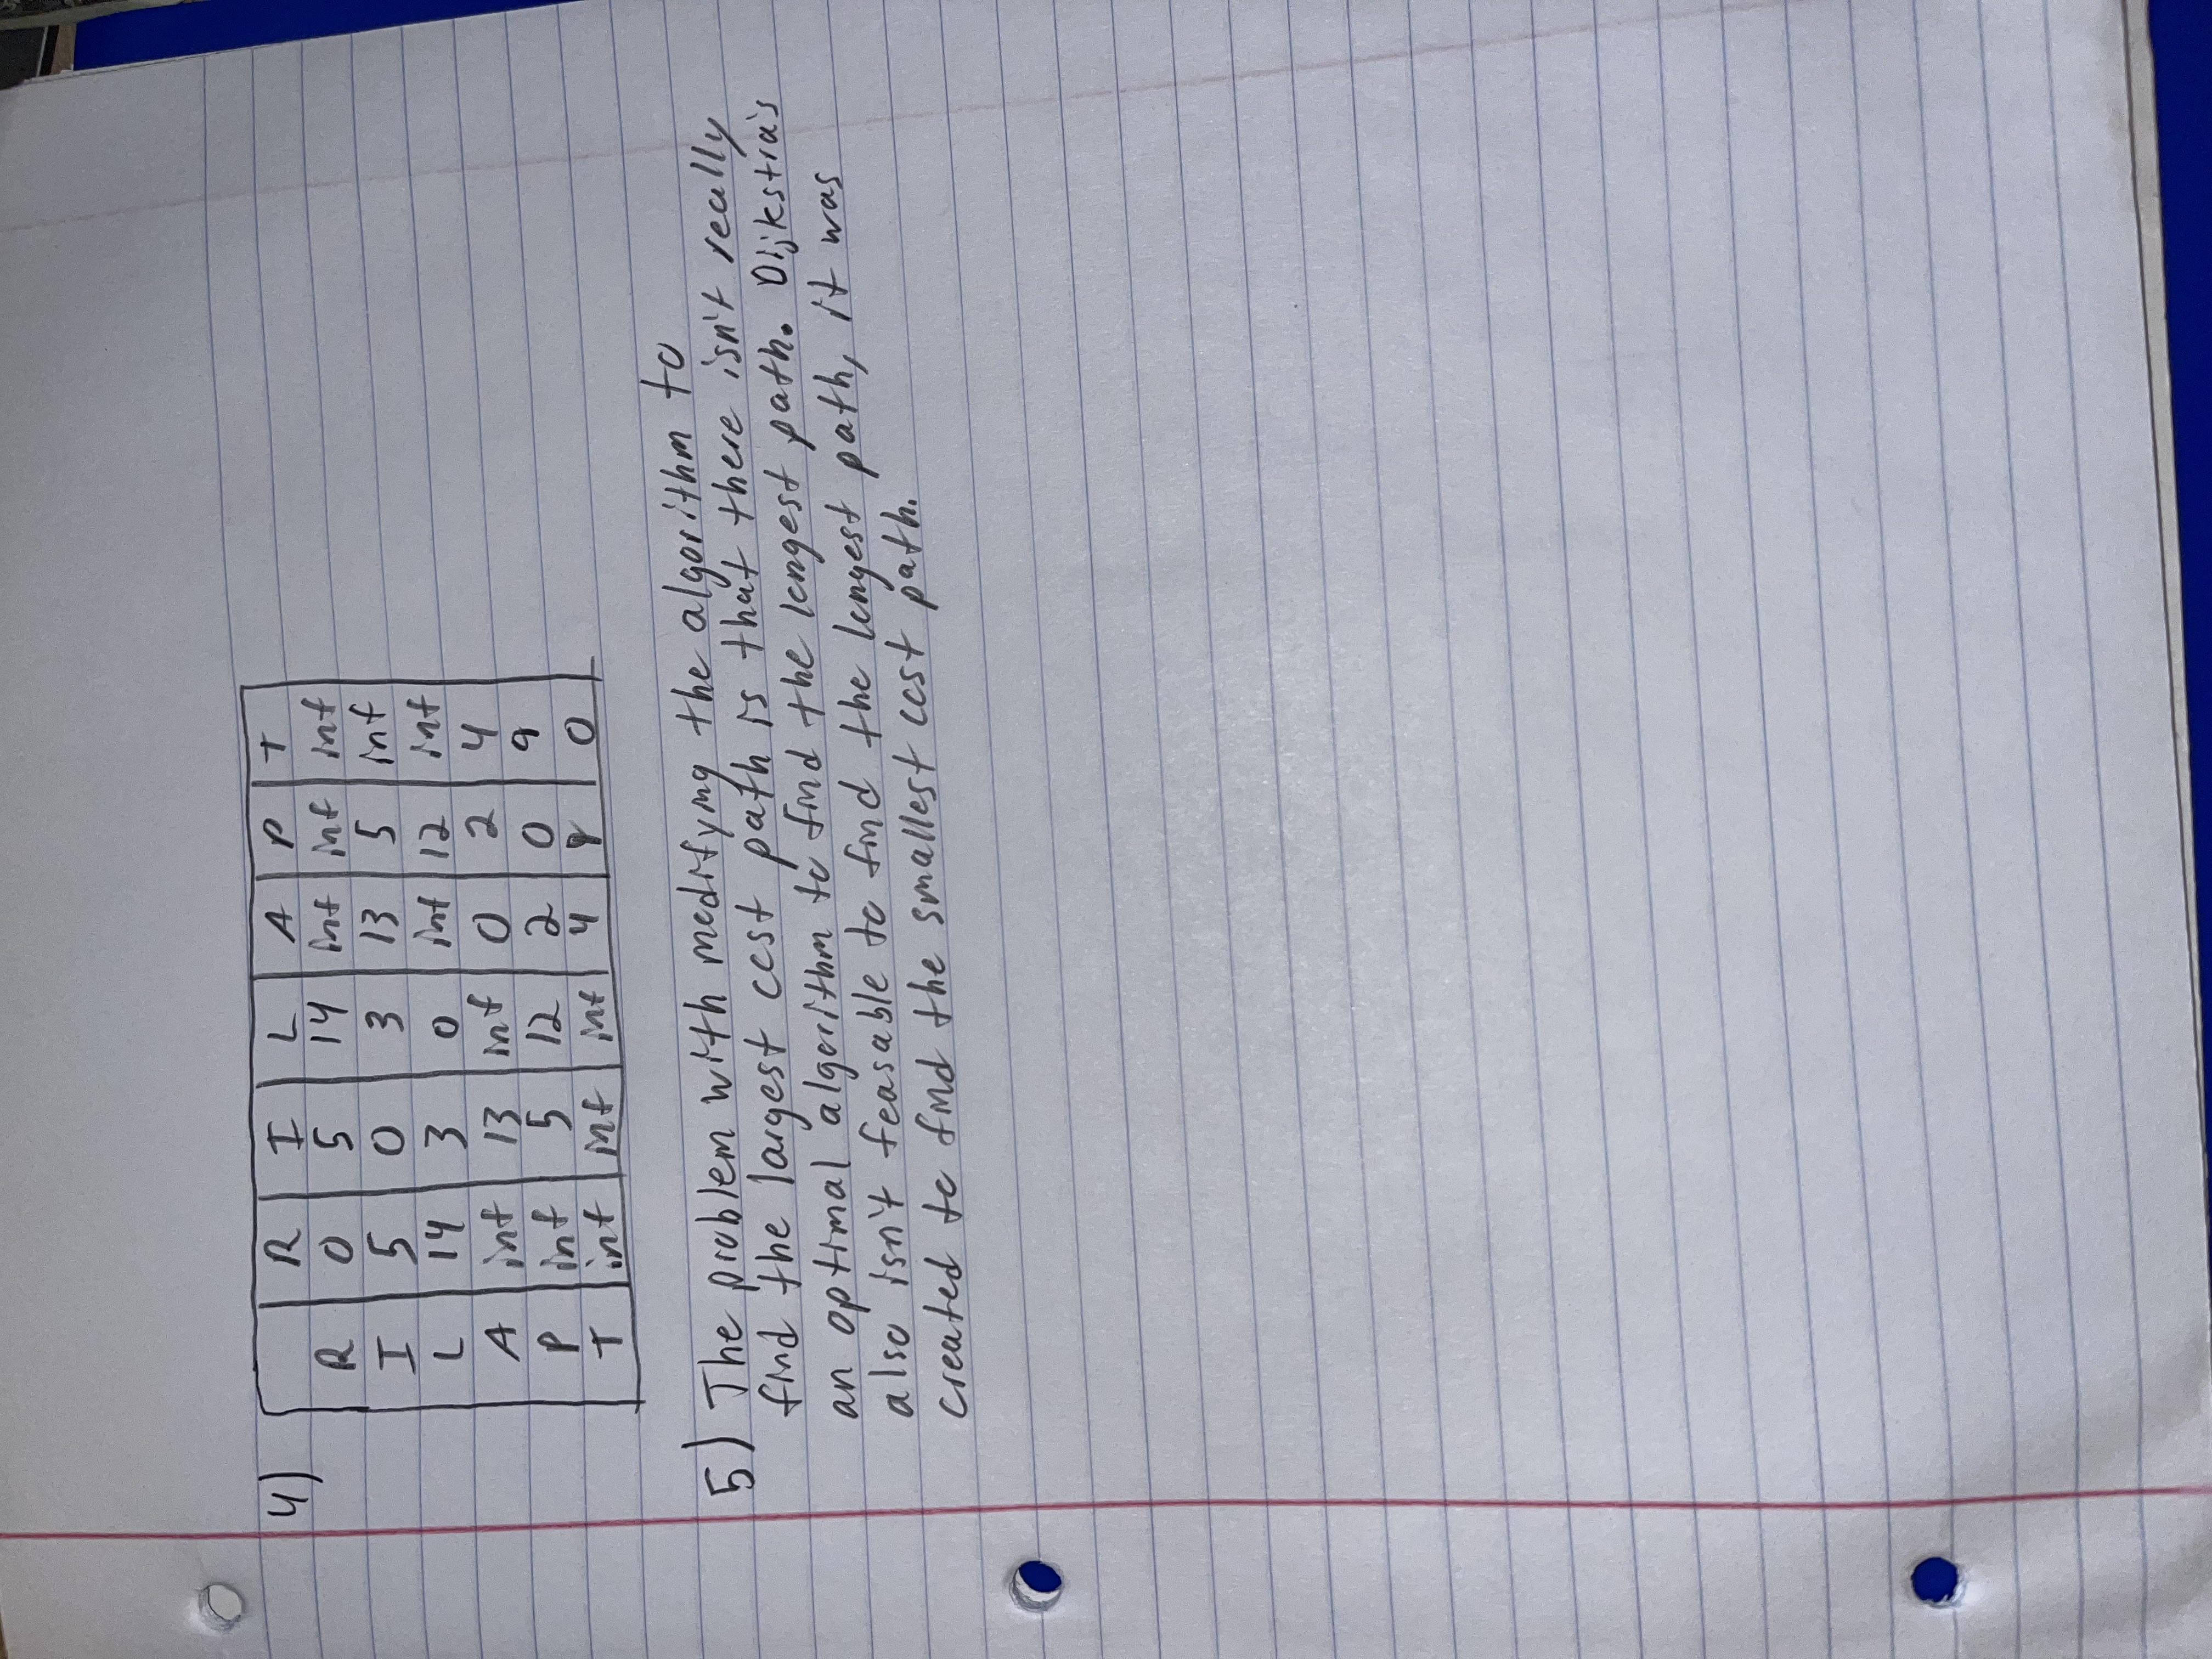 4)
R I L A P T
R 0 5 14 inf inf inf
I 5 0 3 13 5 inf
L 14 3 0 inf 12 inf
A inf 13 inf 0 2 4
P inf 5 12 2 0 9
T inf inf inf 4 9 0
5) The problem with modifying the algorithm to
find the largest cost path is that there isn't really
an optimal algorithm to find the longest path. Dijkstra's
also isn't feasable to find the longest path, it was
created to find the smallest cost path.